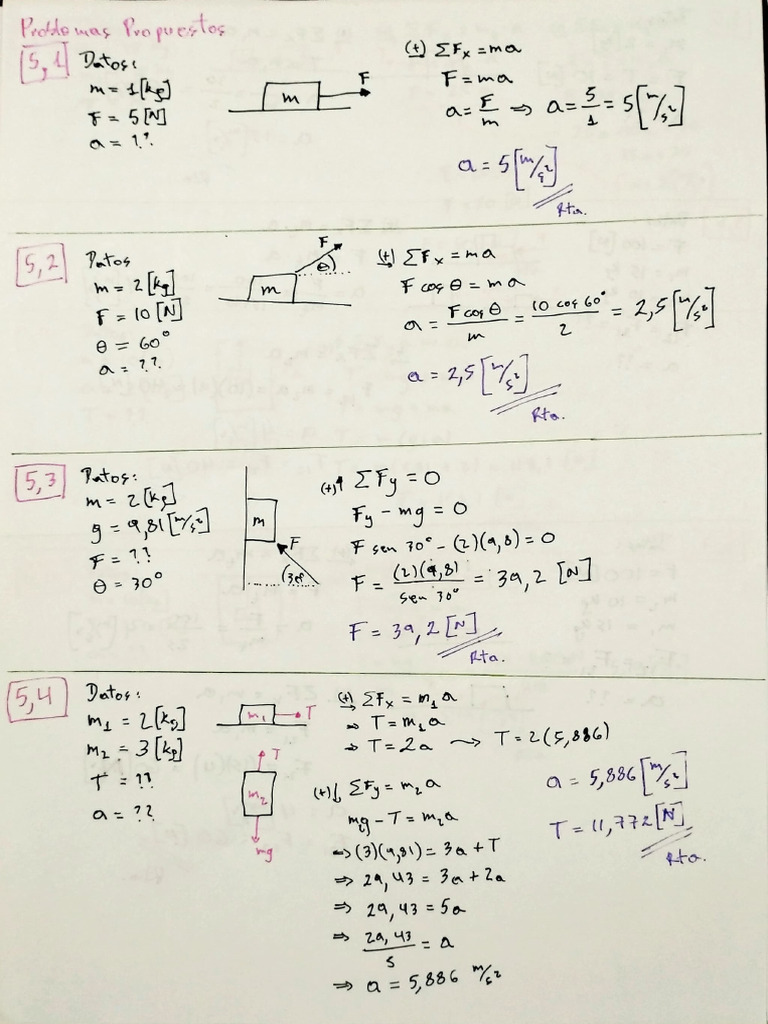 Problemas Propuestos
5,1
Datos:
m = 1 [kg]
F = 5 [N]
a = ??
m
F
(+) ΣFx = ma
F = ma
a = F/m ⇒ a = 5/1 = 5 [m/s²]
a = 5 [m/s²]
Rta.
5,2
Datos
m = 2 [kg]
F = 10 [N]
θ = 60°
a = ??
m
F
θ
(+) ΣFx = ma
F cos θ = ma
a = F cos θ / m = 10 cos 60° / 2 = 2,5 [m/s²]
a = 2,5 [m/s²]
Rta.
5,3
Datos:
m = 2 [kg]
g = 9,81 [m/s²]
F = ??
θ = 30°
m
F
30°
(+)↑ ΣFy = 0
Fy - mg = 0
F sen 30° - (2)(9,8) = 0
F = (2)(9,8) / sen 30° = 39,2 [N]
F = 39,2 [N]
Rta.
5,4
Datos:
m1 = 2 [kg]
m2 = 3 [kg]
T = ??
a = ??
m1
T
T
m2
mg
(+) ΣFx = m1a
⇒ T = m1a
⇒ T = 2a → T = 2(5,886)
(+)↓ ΣFy = m2a
m2g - T = m2a
⇒ (3)(9,81) = 3a + T
⇒ 29,43 = 3a + 2a
⇒ 29,43 = 5a
⇒ 29,43/5 = a
⇒ a = 5,886 m/s²
a = 5,886 [m/s²]
T = 11,772 [N]
Rta.